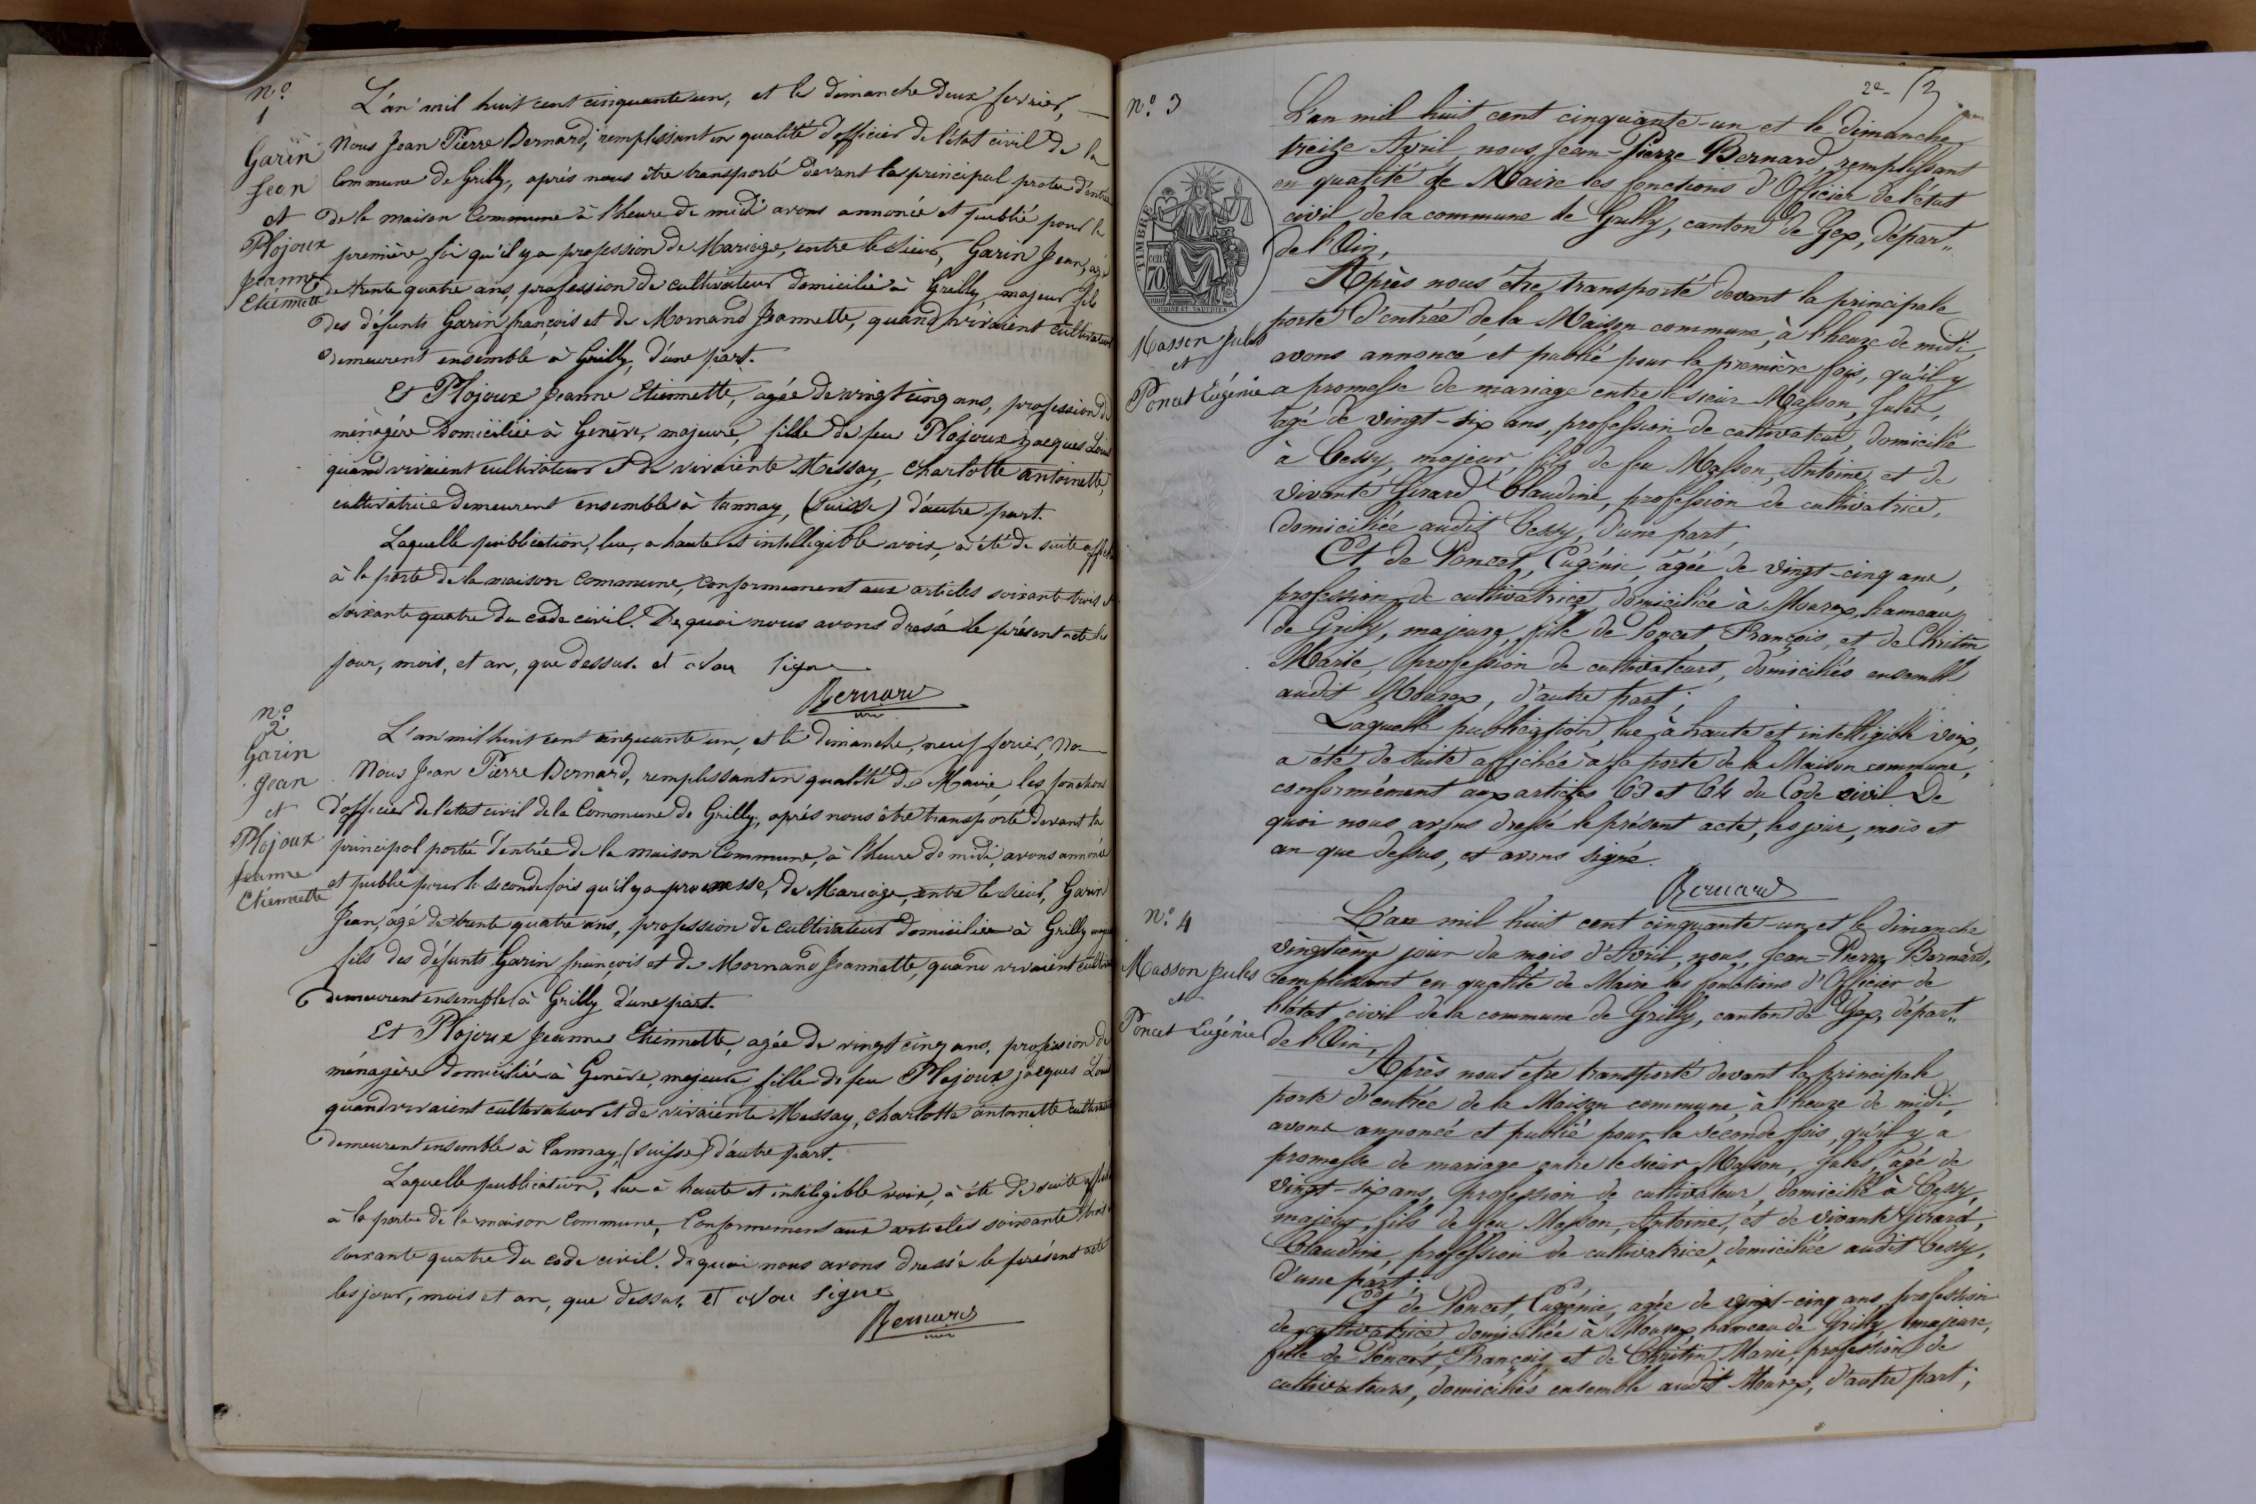 N.o
1
Garin
Jean
et
Plojoux
Jeanne
Etiennette
L'an mil huit cent cinquante un, et le dimanche deux fevrier,
Nous Jean Pierre Bernard, remplissant en qualité d'officier de l'état civil de la
Commune de Grilly, après nous être transporté devant la principal porte d'entrée
de la maison Commune à l'heure de midi avons annoncée et publié pour la
première foi qu'il y a profession de Mariage, entre le Sieur, Garin Jean, agé
de trente quatre ans, profession de cultivateur domicilié à Grilly, majeur fils
des défunts Garin françois et de Mornand Jeannette, quand vivaient cultivateurs
demeurent ensemble à Grilly, d'une part.
Et Plojoux Jeanne Etiennette, agée de vingt cinq ans, profession de
ménagère domiciliée à Genève, majeure, fille de feu Plojoux Jacques Louis
quand vivaient cultivateur et de vivaiente Messay, Charlotte antoinette,
cultivatrice demeurent ensemble à tannay, (suisse) d'autre part.
Laquelle publication, lue, a haute et intelligible voix, à été de suite
à la porte de la maison Commune, Conformement aux articles soixante trois et
soixante quatre du code civil. De quoi nous avons dressé le présent acte les
jour, mois, et an, que dessus. et avon signe
Bernard
N.o
2
Garin
Jean
et
Plojoux
Jeanne
Etiennette
L'an mil huit cent cinquante un, et le dimanche, neuf fevrier,
Nous Jean Pierre Bernard, remplissant en qualité de Maire, les fonctions
d'officier de l'état civil de la Commune de Grilly, après nous être transporté devant la
principal porte d'entrée de la maison Commune, à l'heure de midi, avons annoncée
et publié pour la seconde fois qu'il y a promesse, de Mariage, entre le Sieur, Garin
Jean, agé de trente quatre ans, profession de cultivateur domicilié à Grilly
fils des défunts Garin françois et de Mornand Jeannette, quand vivaient
demeurent ensemble à Grilly d'une part.
Et Plojoux Jeanne Etiennette, agée de vingt cinq ans, profession de
ménagère domiciliée à Genève, majeure fille de feu Plojoux jacques Louis
quand vivaient cultivateur et de vivaiente Messay, Charlotte antoinette
demeurent ensemble à Tannay, (suisse) d'autre part.
Laquelle publication, lue à haute et intéligible voix, à été de suite
à la porte de la maison Commune, Conformement aux articles soixante trois
soixante quatre du code civil. de quoi nous avons dressé le présent acte
les jour, mois et an, que dessus. et avon signe
Bernard
2e
N.o 3
TIMBRE
70
Masson Jules
et
Poncet Eugénie
L'an mil huit cent cinquante-un et le dimanche
treize Avril nous Jean-Pierre Bernard, remplissant
en qualité de Maire les fonctions d'Officier de l'état
civil de la commune de Grilly, canton de Gex, départ.t
de l'Ain,
Après nous être transporté devant la principale
porte d'entrée de la Maison commune, à l'heure de midi,
avons annoncé et publié pour la première fois, qu'il y
a promesse de mariage entre le sieur Masson, Jules,
agé de vingt-six ans, profession de cultivateur, domicilié
à Cessy, majeur, fils de feu Masson, Antoine, et de
vivante Girard Claudine, profession de cultivatrice,
domiciliée audit Cessy, d'une part,
Et de Poncet, Eugénie, âgée de vingt-cinq ans,
profession de cultivatrice, domiciliée à Mourex, hameau
de Grilly, majeure, fille de Poncet, François, et de Chrétin
Marie, profession de cultivateurs, domiciliés ensemble
audit Mourex, d'autre part;
Laquelle publication, lue à haute et intelligible voix,
a été de suite affichée à la porte de la Maison commune,
conformément aux articles 63 et 64 du Code civil. De
quoi nous avons dressé le présent acte, les jour, mois et
an que dessus, et avons signé.
Bernard
N.o 4
Masson Jules
et
Poncet Eugénie
L'an mil huit cent cinquante-un et le dimanche
vingtième jour du mois d'Avril, nous, Jean-Pierre Bernard,
remplissant en qualité de Maire les fonctions d'Officier de
l'état civil de la commune de Grilly, canton de Gex, départ.t
de l'Ain,
Après nous être transporté devant la principale
porte d'entrée de la Maison commune, à l'heure de midi,
avons annoncé et publié pour la seconde fois, qu'il y a
promesse de mariage entre le sieur Masson, Jules, âgé de
vingt-six ans, profession de cultivateur, domicilié à Cessy,
majeur, fils de feu Masson, Antoine, et de vivante Girard,
Claudine, profession de cultivatrice, domiciliée audit Cessy,
d'une part;
Et de Poncet, Eugénie, agée de vingt-cinq ans, profession
de cultivatrice, domiciliée à Mourex hameau de Grilly, majeure,
fille de Poncet, François, et de Chrétin Marie, profession de
cultivateurs, domiciliés ensemble audit Mourex, d'autre part;